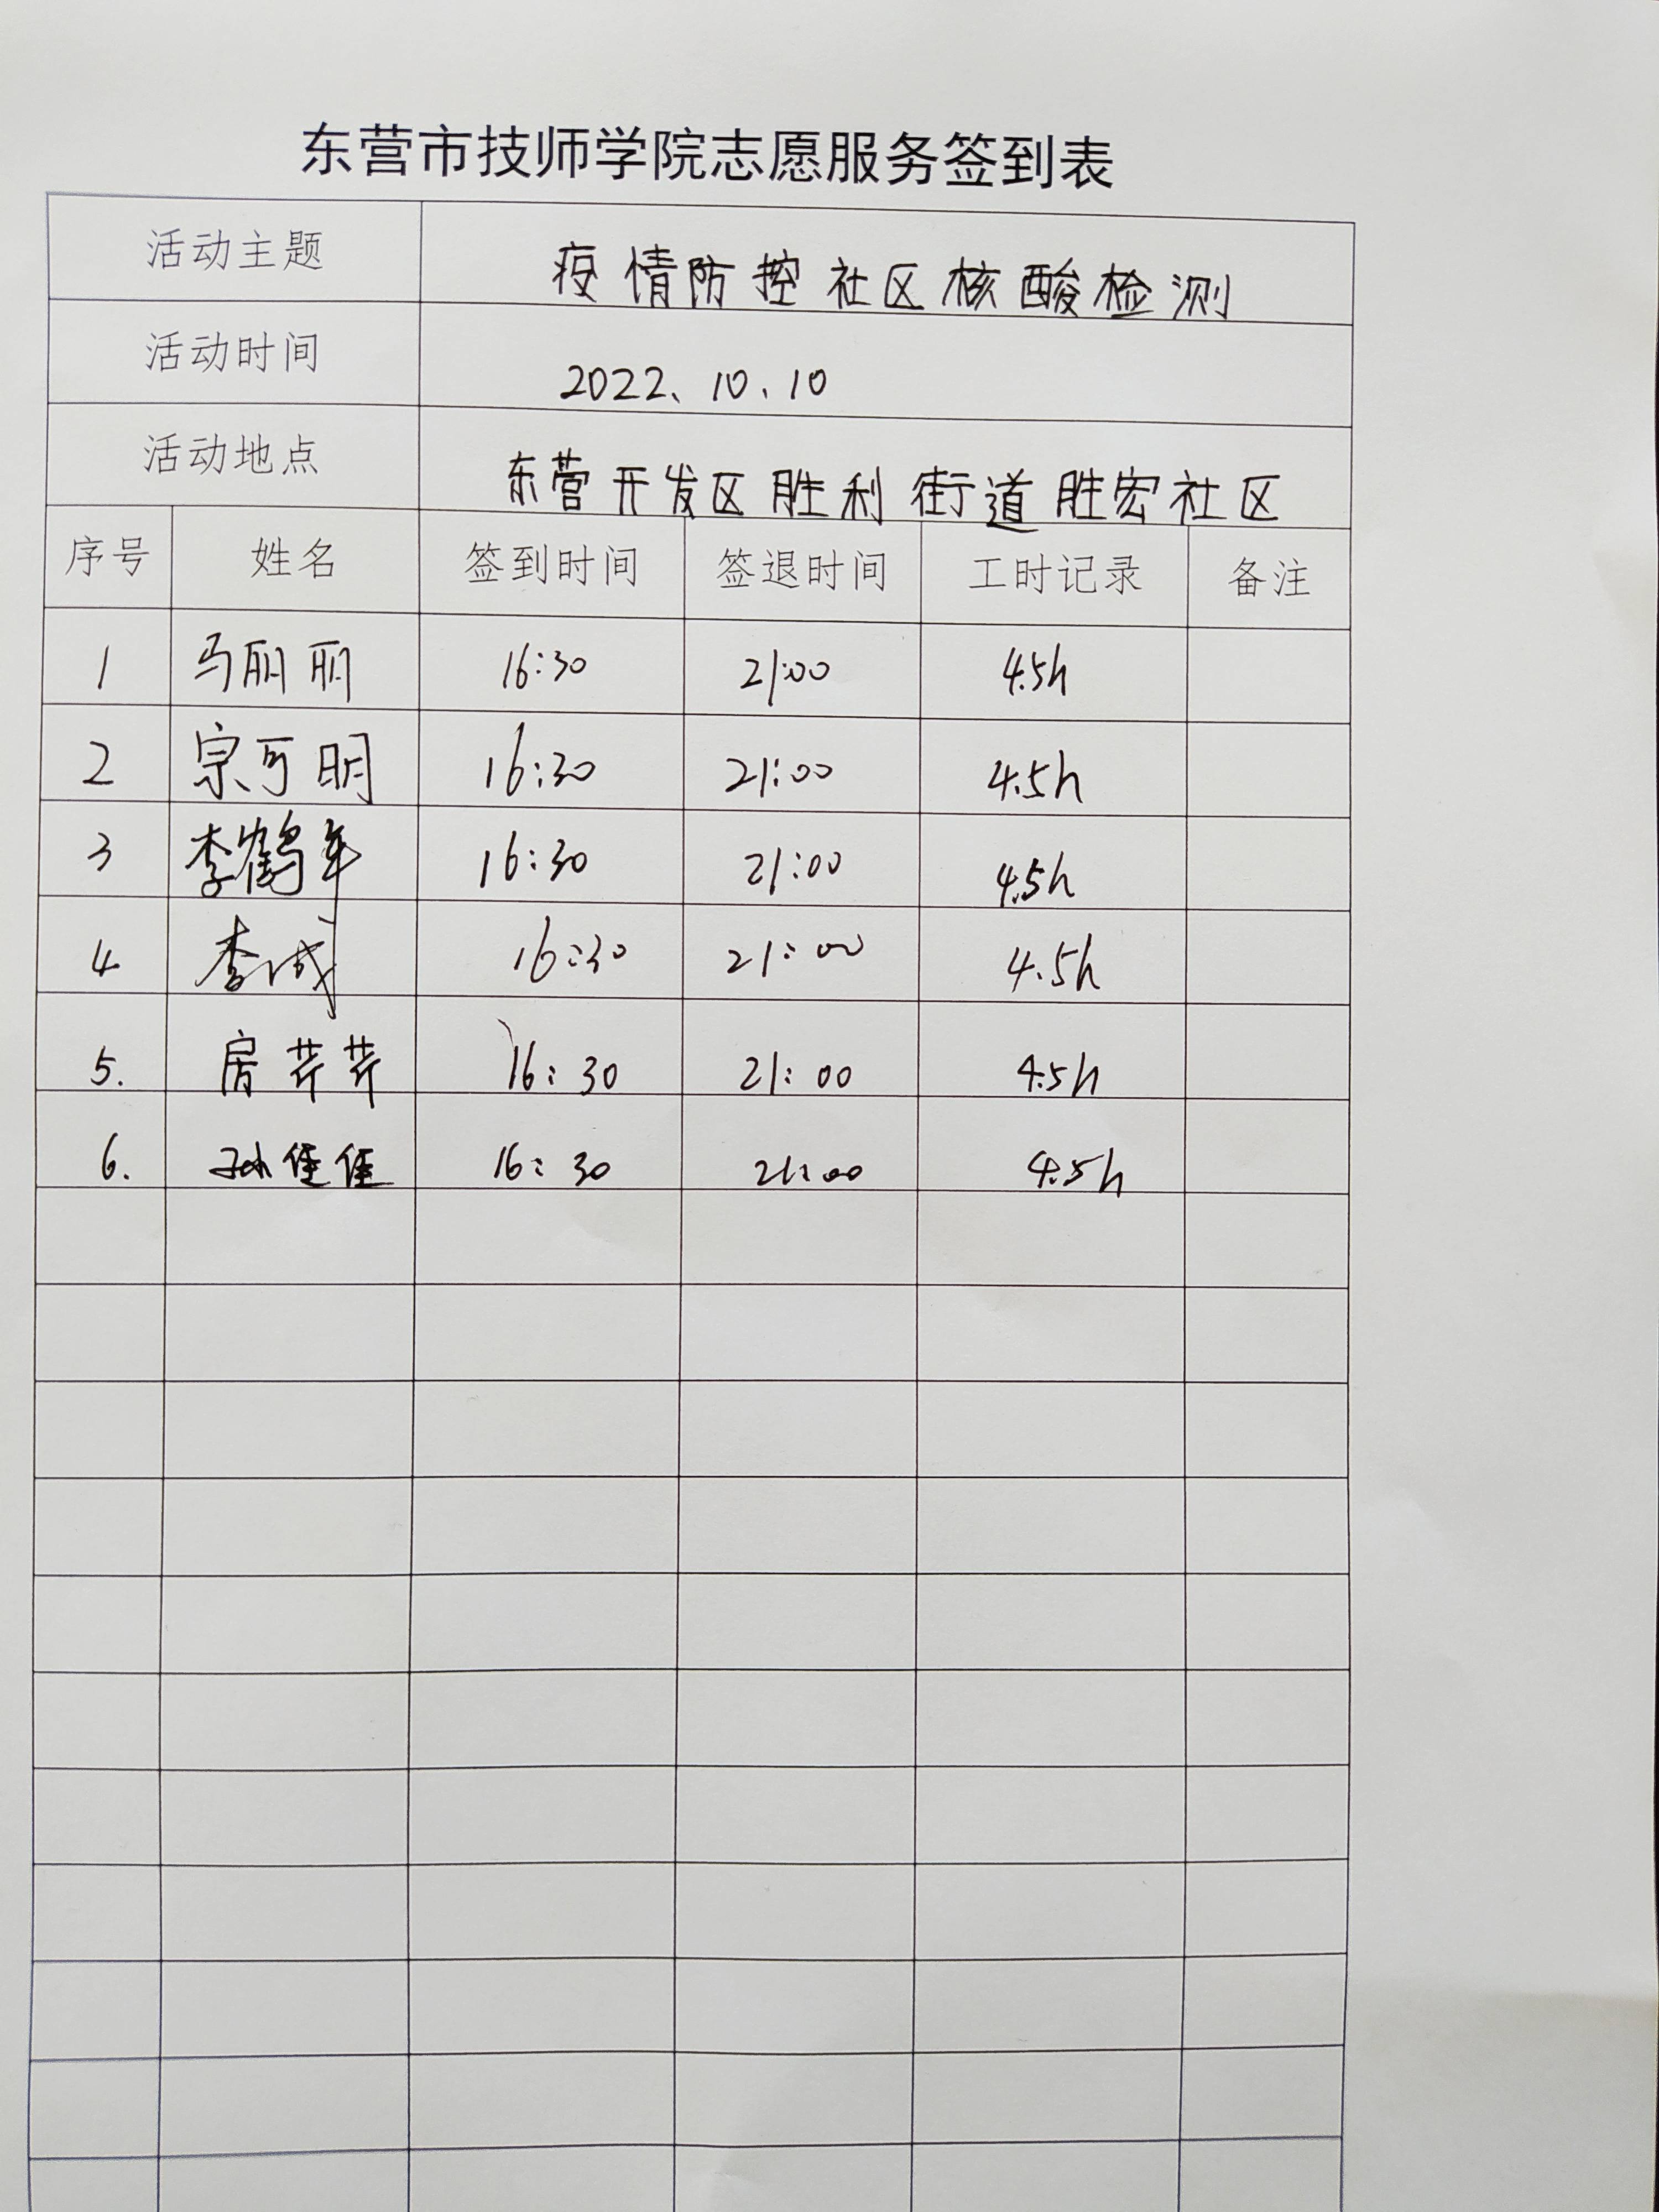 东营市技师学院志愿服务签到表
活动主题 疫情防控社区核酸检测
活动时间 2022、10、10
活动地点 东营开发区胜利街道胜宏社区
序号 姓名 签到时间 签退时间 工时记录 备注
1 马丽丽 16:30 21:00 4.5h
2 宗可明 16:30 21:00 4.5h
3 李鹤年 16:30 21:00 4.5h
4 李诚 16:30 21:00 4.5h
5. 房芹芹 16:30 21:00 4.5h
6. 孙佳佳 16:30 21:00 4.5h